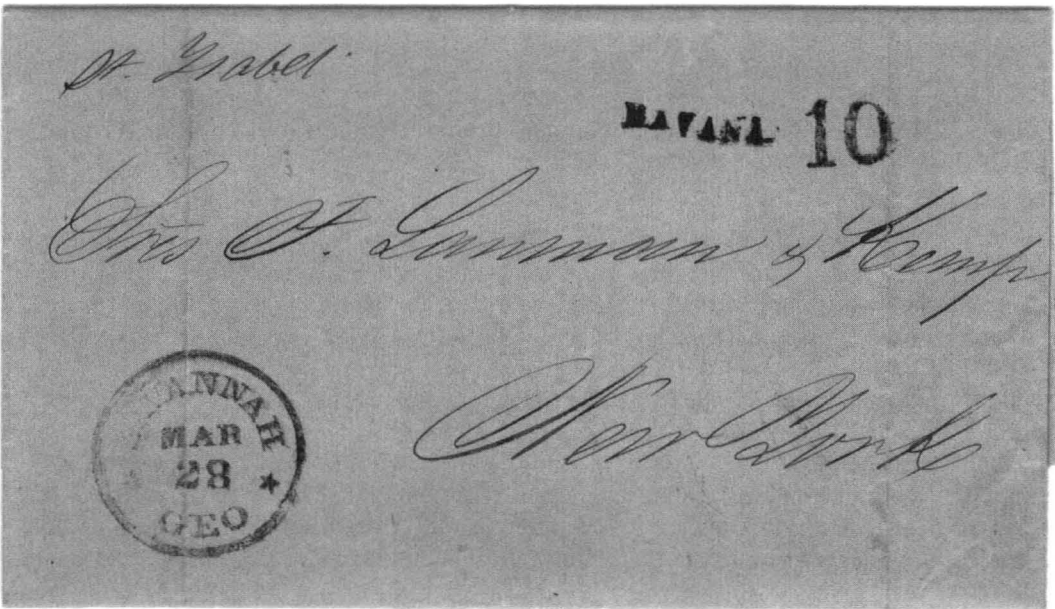 St. Ysabel
HAVANA 10
Sres F. Lanman & Kemp
New York
SAVANNAH
MAR
28
GEO